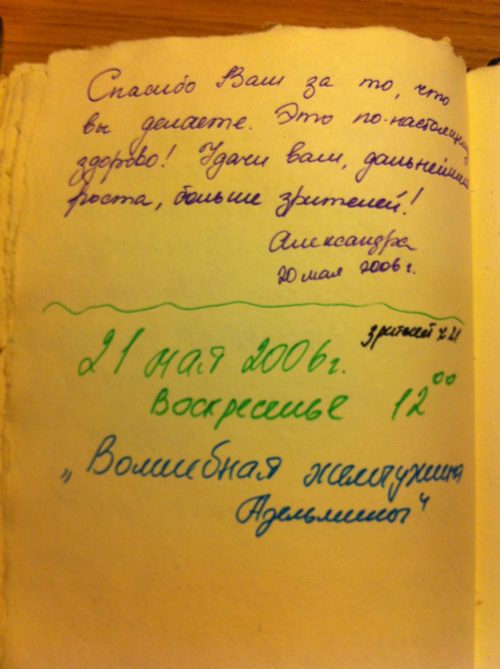 Спасибо Вам за то, что
вы делаете. Это по-настоящему
здорово! Удачи вам, дальнейшего
роста, больше зрителей!
Александра
20 мая 2006 г.
зрителей 21
21 мая 2006 г.
Воскресенье 12⁰⁰
„Волшебная жемчужина
Адельмины“